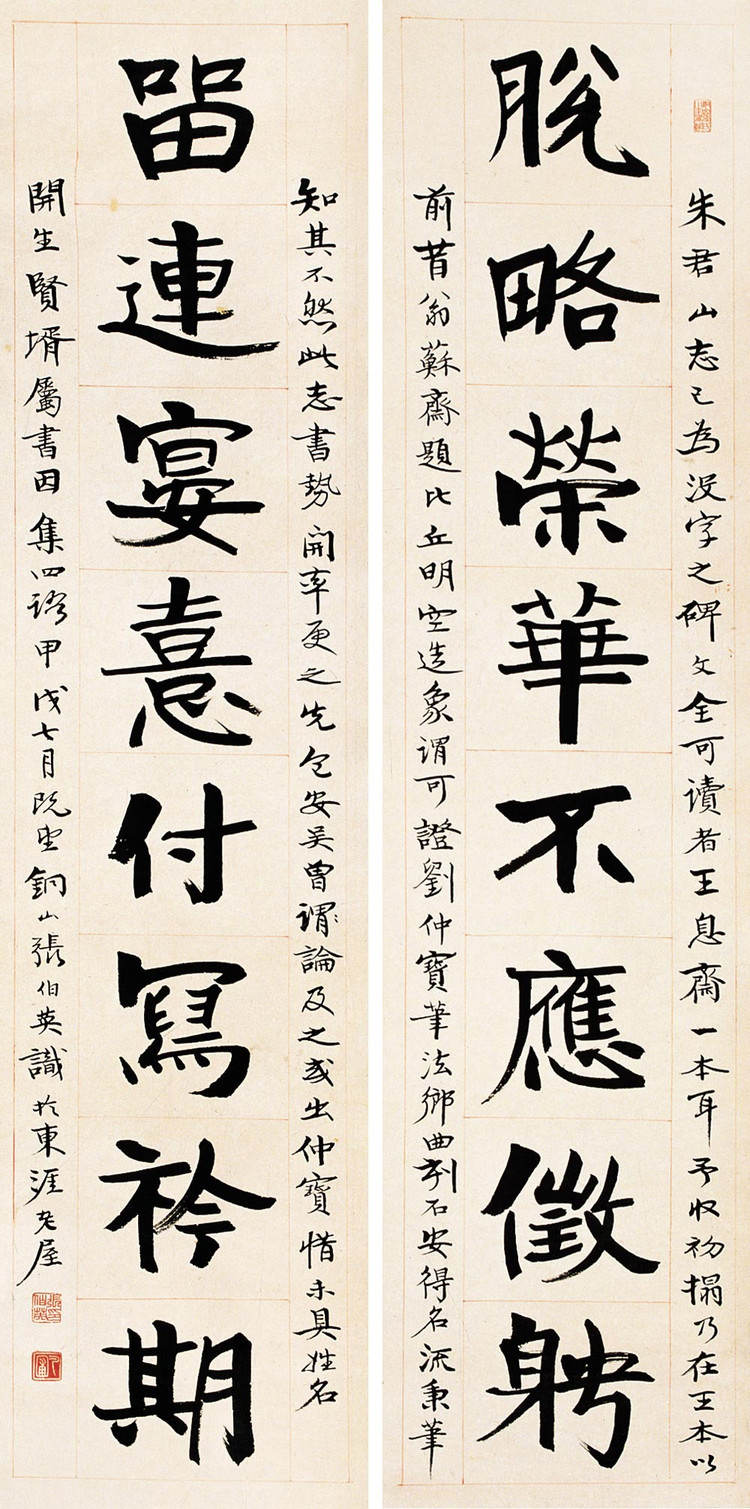 朱君山志已為沒字之碑文全可讀者王息齋一本耳予收初搨乃在王本以
脫略榮華不應徵聘
前昔翁蘇齋題比丘明空造象謂可證劉仲寶筆法鄉曲刻石安得名流秉筆
知其不然此志書勢開率更之先包安吳曾謂論及之或出仲寶惜未具姓名
留連宴憙付寫衿期
開生賢壻屬書因集四語甲戌七月既望銅山張伯英識於東涯老屋
張伯英